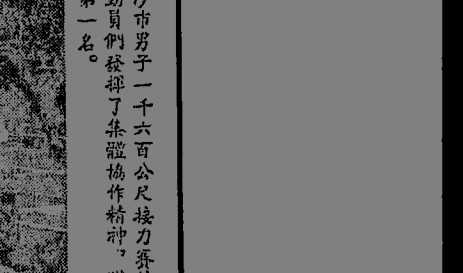 沙市男子一千六百公尺接力賽
動員們發揮了集體協作精神。
第一名。